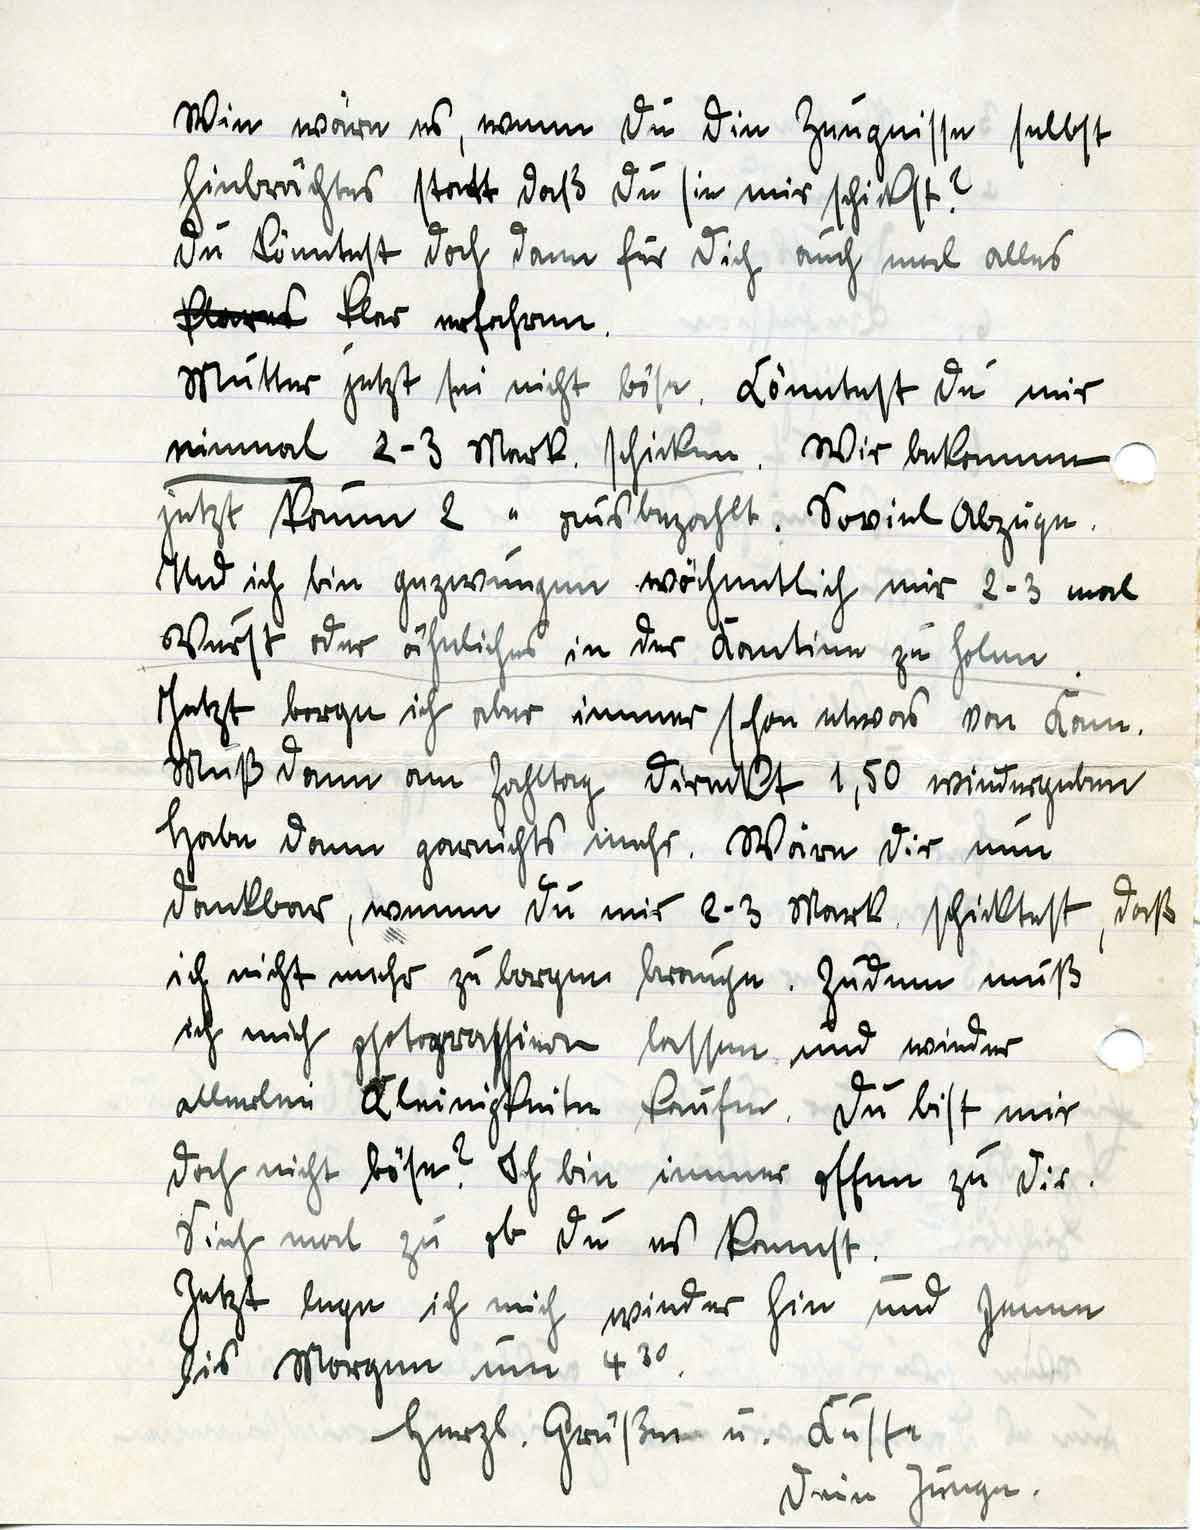 Wie wäre es, wenn Du die Zeugnisse selbst
hinbrächtes statt daß Du sie mir schickst?
Du könntest doch dann für Dich auch mal alles
klares klar erfahren.
Mutter jetzt sei nicht böse. Könntest Du mir
einmal 2-3 Mark. schicken. Wir bekommen
jetzt kaum 2 " ausbezahlt. Soviel Abzüge.
Und ich bin gezwungen wöchentlich mir 2-3 mal
Wurst oder ähnliches in der Kantine zu holen.
Jetzt borge ich aber immer schon etwas von Kam.
Muß dann am Zahltag direckt 1,50 wiedergeben
Habe dann garnichts mehr. Wäre Dir nun
dankbar, wenn Du mir 2-3 Mark. schicktest, daß
ich nicht mehr zu borgen brauche. Zudem muß
ich mich photograffieren lassen und wieder
allerlei Kleinigkeiten kaufen. Du bist mir
doch nicht böse? Ich bin immer offen zu Dir.
Sieh mal zu ob Du es kannst.
Jetzt lege ich mich wieder hin und
bis Morgen um 4 30.
Herzl. Grüßen u. Küsse
Dein Junge.